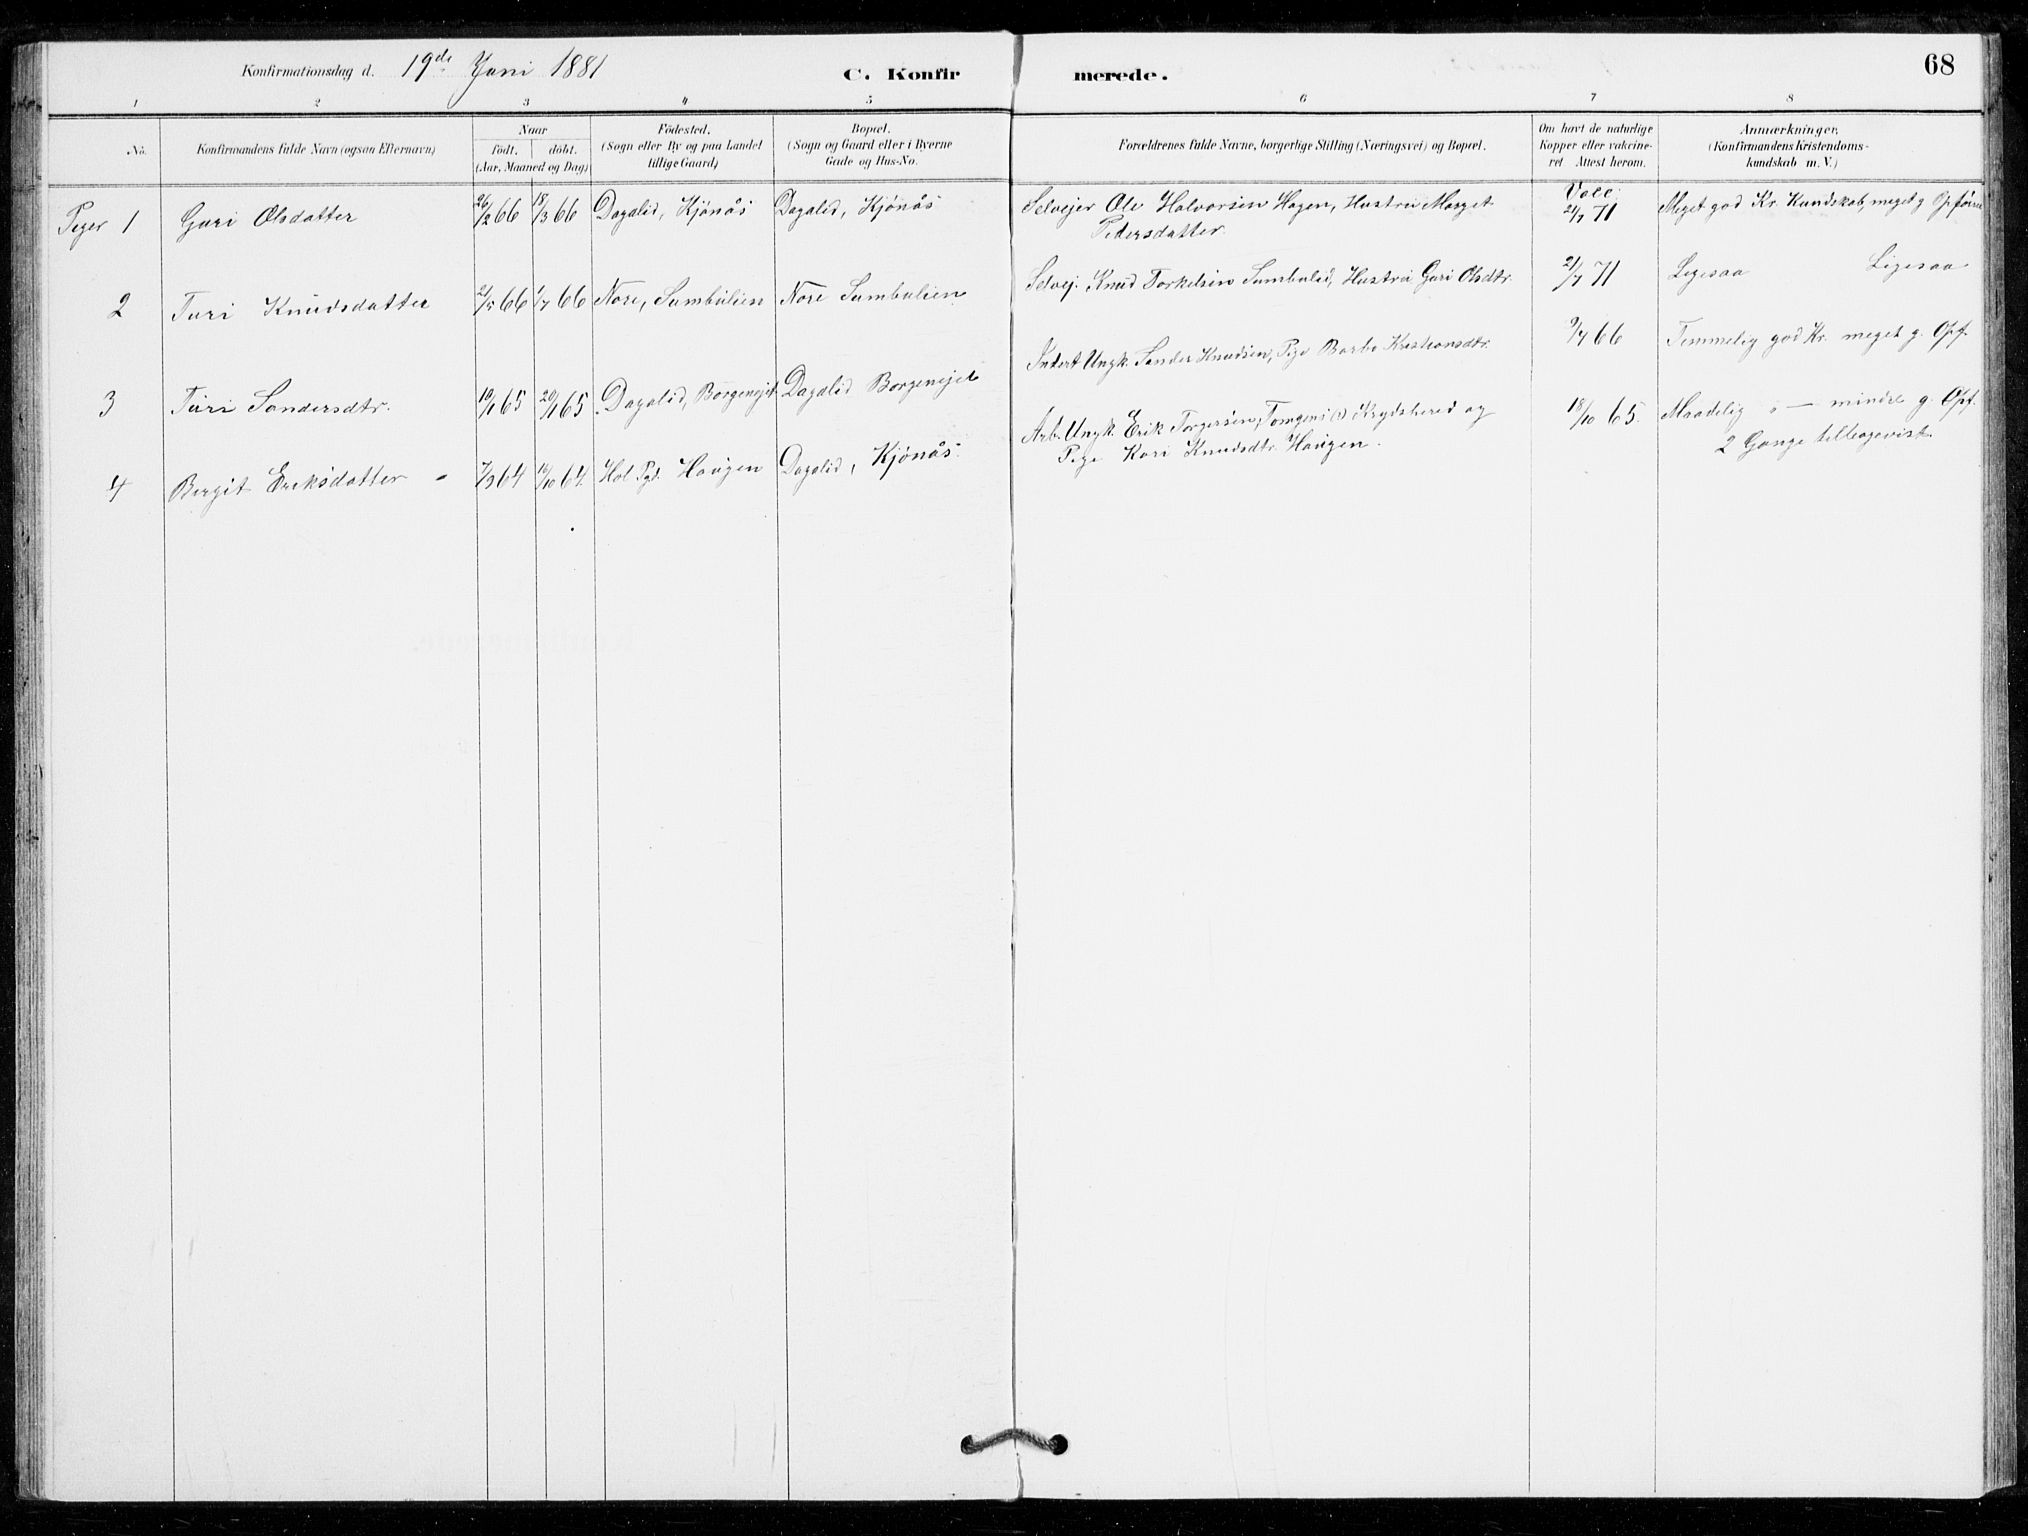 Konfirmationsdag d. 19de Juni 1881 C. Konfir merede. 68
1 2 3 4 5 6 7 8
No. Konfirmandens fulde Navn (ogsaa Efternavn) Naar födt. döbt. (Aar, Maaned og Dag) Födested. (Sogn eller By og paa Landet tillige Gaard) Bopæl. (Sogn og Gaard eller i Byerne Gade og Hus-No. Forældrenes fulde Navne, borgerlige Stilling (Næringsvei) og Bopæl. Om havt de naturlige Kopper eller vakcineret Attest herom. Anmærkninger. (Konfirmandens Kristendomskundskab m. V.)
Piger 1 Guri Olsdatter 26/2 66 18/3 66 Dagalid, Kjönås Dagalid, Kjönås Selvejer Ole Halvorsen Hagen, Hustru Marget Vacc: 21/7 71 Meget god Kr. Kundskab, meget g. Opförsel
Pedersdatter.
2 Turi Knudsdatter 21/5 66 1/7 66 Nore, Sumbulien Nore Sumbulien Selvej. Knud Torkelsen Sumbulid, Hustru Guri Olsdtr. 21/7 71 Ligesaa Ligesaa
3 Turi Sandersdtr. 10/1 65 20/1 65 Dagalid, Borgenejet Dagalid Borgenejet Inderst Ungk. Sander Knudsen, Pige Barbo Kristiansdtr. 9/7 66 Temmelig god Kr. meget g. Opf.
4 Birgit Eriksdatter 7/9 64 16/10 64. Hol Pgd. Haugen Dagalid, Kjönås. Arb. Ungk. Erik Torgersen, i Krydshered og 18/10 65. Maadelig " — mindre g. Opf.
Pige Kari Knudsdtr. Haugen. 2 Gange tilbagevist.